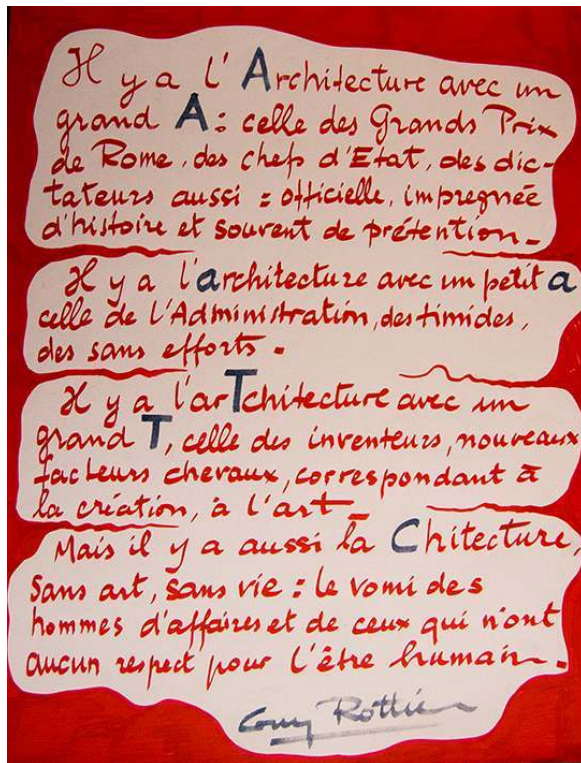 Il y a l'Architecture avec un
grand A : celle des Grands Prix
de Rome, des chefs d'Etat, des dic-
tateurs aussi : officielle, impregnée
d'histoire et souvent de prétention.
Il y a l'architecture avec un petit a
celle de l'Administration, des timides,
des sans efforts.
Il y a l'arTchitecture avec un
grand T, celle des inventeurs, nouveaux
facteurs chevaux, correspondant à
la création, à l'art.
Mais il y a aussi la Chitecture,
sans art, sans vie : le vomi des
hommes d'affaires et de ceux qui n'ont
aucun respect pour l'être humain.
Guy Rottier